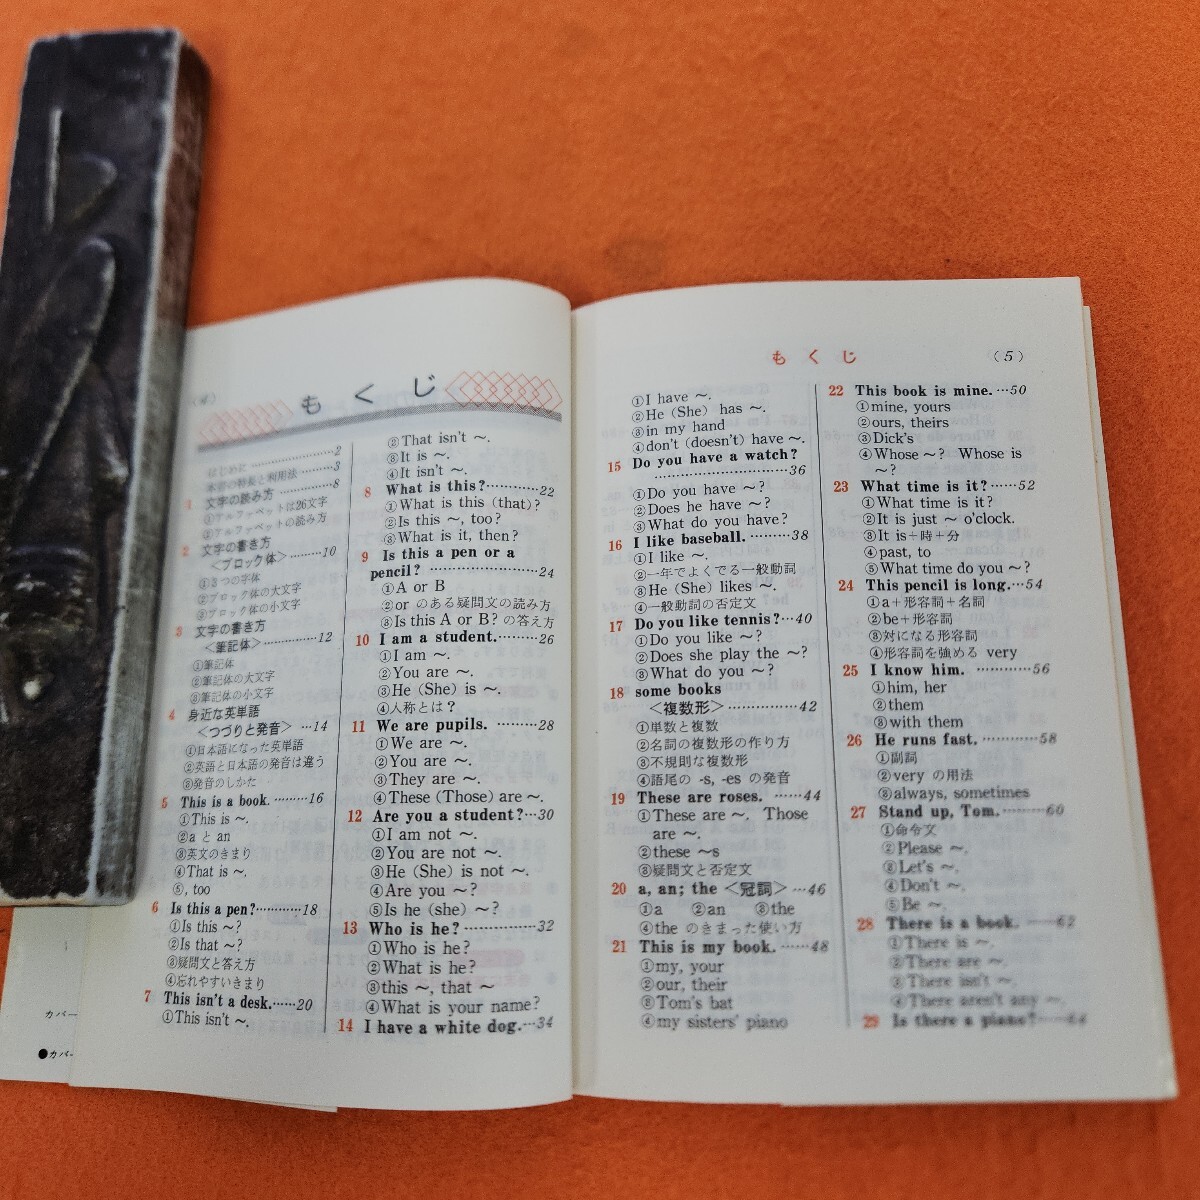 〈4〉
もくじ
はじめに ………………2
本書の特長と利用法 ………3
1 文字の読み方 …………8
①アルファベットは26文字
②アルファベットの読み方
2 文字の書き方
＜ブロック体＞………10
①3つの字体
②ブロック体の大文字
③ブロック体の小文字
3 文字の書き方
＜筆記体＞……………12
①筆記体
②筆記体の大文字
③筆記体の小文字
4 身近な英単語
＜つづりと発音＞ …14
①日本語になった英単語
②英語と日本語の発音は違う
③発音のしかた
5 This is a book. ………16
①This is ～.
②a と an
③英文のきまり
④That is ～.
⑤, too
6 Is this a pen?…………18
①Is this ～?
②Is that ～?
③疑問文と答え方
④忘れやすいきまり
7 This isn't a desk.……20
①This isn't ～.
②That isn't ～.
③It is ～.
④It isn't ～.
8 What is this?…………22
①What is this (that)?
②Is this ～, too?
③What is it, then?
9 Is this a pen or a
pencil? …………………24
①A or B
②or のある疑問文の読み方
③Is this A or B? の答え方
10 I am a student.………26
①I am ～.
②You are ～.
③He (She) is ～.
④人称とは？
11 We are pupils. ………28
①We are ～.
②You are ～.
③They are ～.
④These (Those) are ～.
12 Are you a student?…30
①I am not ～.
②You are not ～.
③He (She) is not ～.
④Are you ～?
⑤Is he (she) ～?
13 Who is he? ……………32
①Who is he?
②What is he?
③this ～, that ～
④What is your name?
14 I have a white dog.…34
もくじ 〈5〉
①I have ～.
②He (She) has ～.
③in my hand
④don't (doesn't) have ～.
15 Do you have a watch?
…………………………36
①Do you have ～?
②Does he have ～?
③What do you have?
16 I like baseball. ………38
①I like ～.
②一年でよくでる一般動詞
③He (She) likes ～.
④一般動詞の否定文
17 Do you like tennis?…40
①Do you like ～?
②Does she play the ～?
③What do you ～?
18 some books
＜複数形＞……………42
①単数と複数
②名詞の複数形の作り方
③不規則な複数形
④語尾の -s, -es の発音
19 These are roses. ……44
①These are ～. Those
are ～.
②these ～s
③疑問文と否定文
20 a, an; the ＜冠詞＞ …46
①a ②an ③the
④the のきまった使い方
21 This is my book. ……48
①my, your
②our, their
③Tom's bat
④my sisters' piano
22 This book is mine. …50
①mine, yours
②ours, theirs
③Dick's
④Whose ～? Whose is
～?
23 What time is it?……52
①What time is it?
②It is just ～ o'clock.
③It is＋時＋分
④past, to
⑤What time do you ～?
24 This pencil is long.…54
①a＋形容詞＋名詞
②be＋形容詞
③対になる形容詞
④形容詞を強める very
25 I know him. …………56
①him, her
②them
③with them
26 He runs fast. …………58
①副詞
②very の用法
③always, sometimes
27 Stand up, Tom.………60
①命令文
②Please ～.
③Let's ～.
④Don't ～.
⑤Be ～.
28 There is a book. ……62
①There is ～.
②There are ～.
③There isn't ～.
④There aren't any ～.
29 Is there a piano?……64
カバー
●カバー